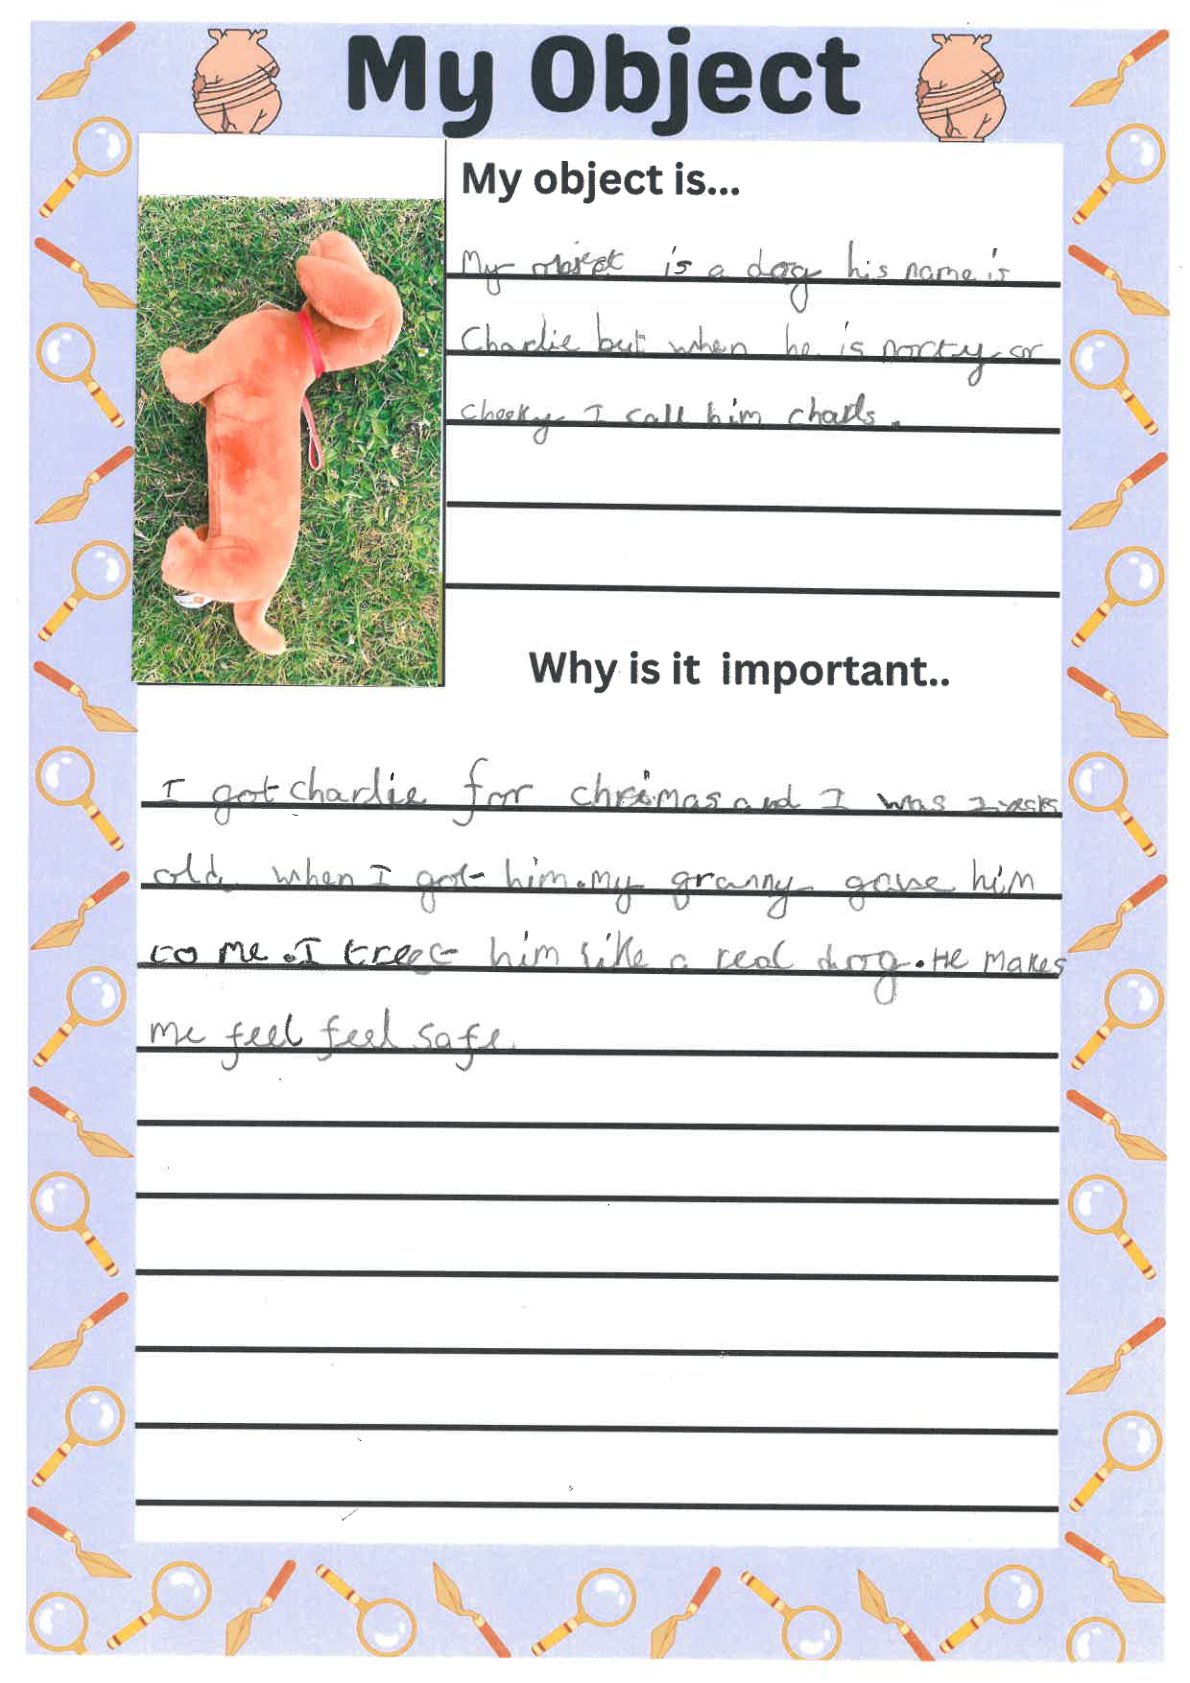 My Object
My object is...
My object is a dog his name is
Charlie but when he is norty or
cheeky I call him charls.
Why is it important..
I got charlie for chrismas and I was 2 weaks
old when I got him.my granny gave him
to me.I treet him like a real dog.He makes
me feel feel safe.